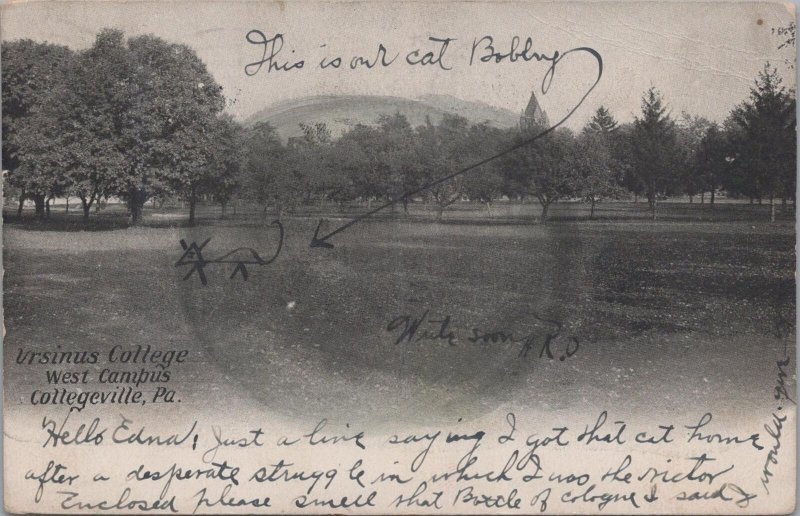 This is our cat Bobbly
Write soon
H R D
Ursinus College
West Campus
Collegeville, Pa.
Hello Edna! Just a line saying I got that cat home
after a desperate struggle in which I was the victor
Enclosed please smell that Bottle of cologne I said I
would give